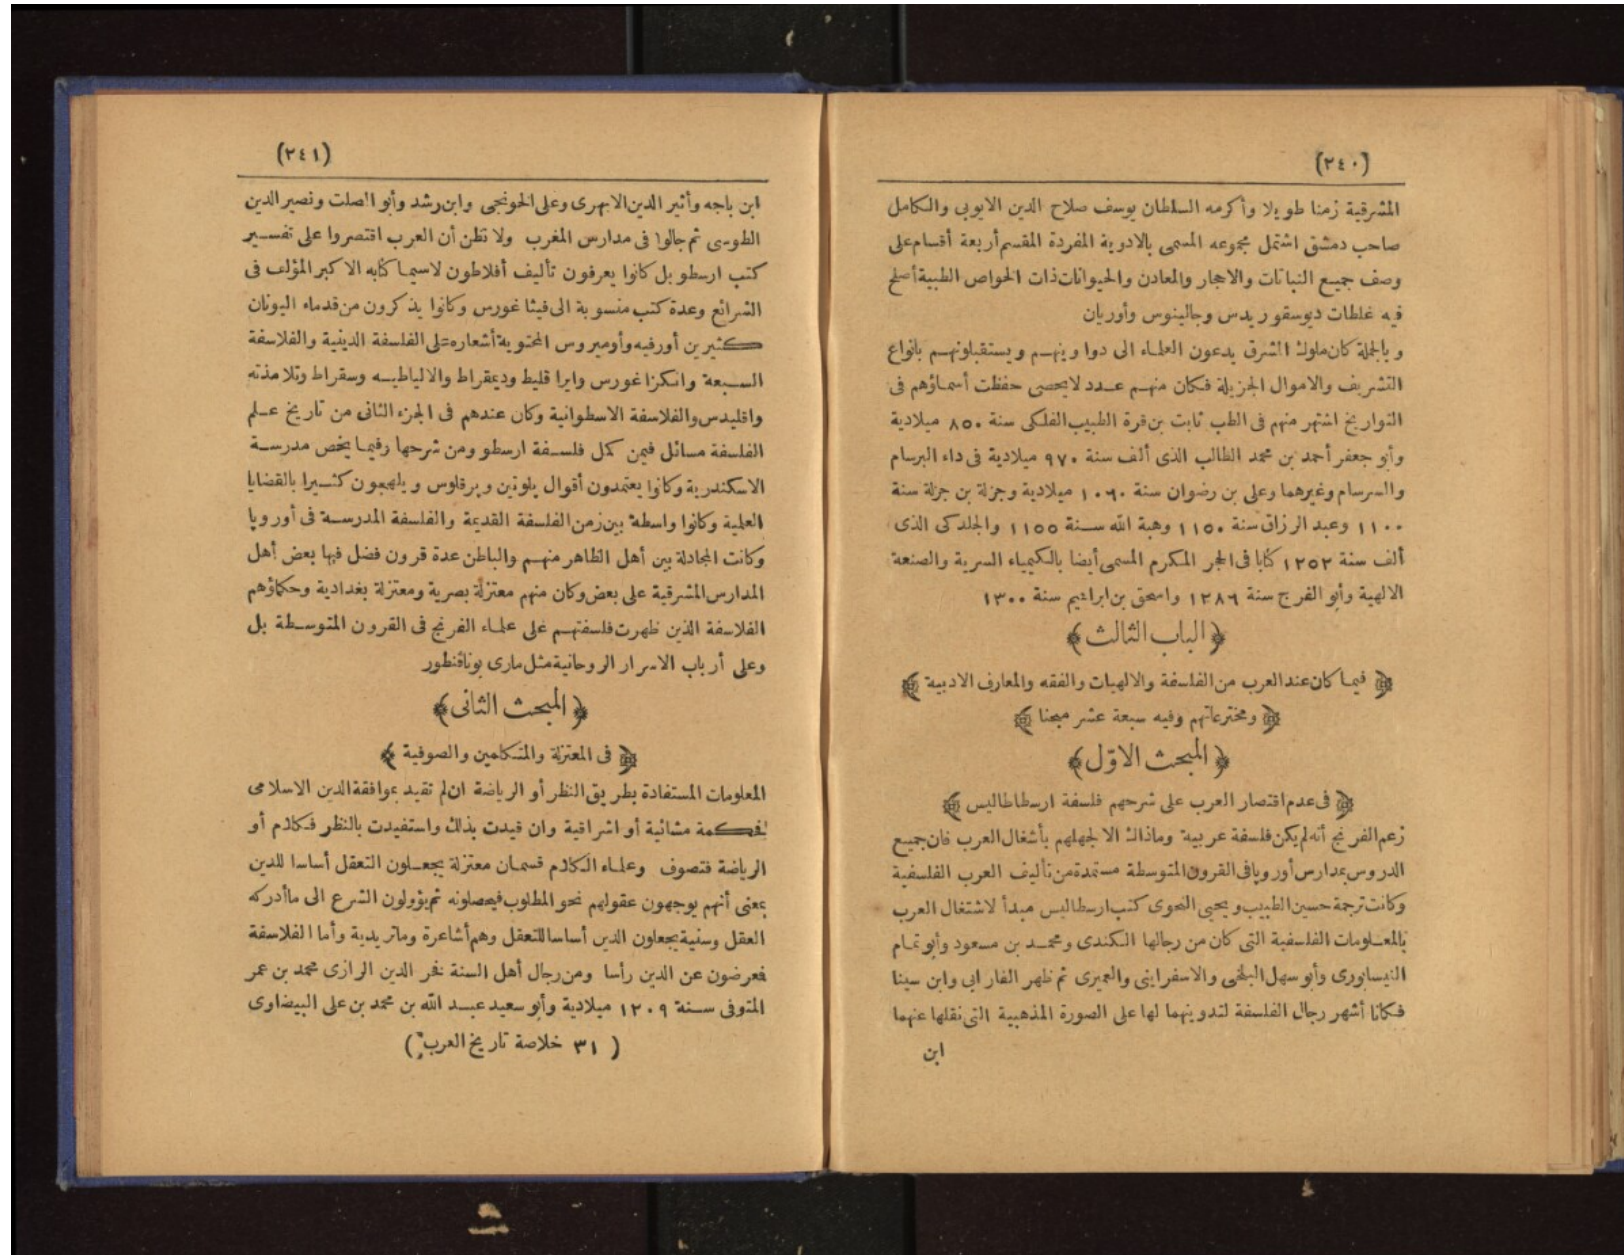 (٢٤٠)
المشرقية زمنا طويلا وأكرمه السلطان يوسف صلاح الدين الايوبى والكامل
صاحب دمشق اشتمل مجموعه المسمى بالادوية المفردة المقسم أربعة أقسام على
وصف جميع النباتات والاحجار والمعادن والحيوانات ذات الخواص الطبية أصلح
فيه غلطات ديوسقوريدس وجالينوس وأوريان
وبالجملة كان ملوك الشرق يدعون العلماء الى دواوينهم ويستقبلونهم بانواع
التشريف والاموال الجزيلة فكان منهم عدد لا يحصى حفظت أسماؤهم فى
التواريخ اشتهر منهم فى الطب ثابت بن قرة الطبيب الفلكى سنة ٨٥٠ ميلادية
وأبو جعفر أحمد بن محمد الطالب الذى ألف سنة ٩٧٠ ميلادية فى داء البرسام
والسرسام وغيرهما وعلى بن رضوان سنة ١٠٦٠ ميلادية وجزلة بن جزلة سنة
١١٠٠ وعبد الرزاق سنة ١١٥٠ وهبة الله سنة ١١٥٥ والجلدكى الذى
ألف سنة ١٢٥٢ كتابا فى الحجر المكرم المسمى أيضا بالكيمياء السرية والصنعة
الالهية وأبو الفرج سنة ١٢٨٦ واسحق بن ابراهيم سنة ١٣٠٠
﴿الباب الثالث﴾
﴿فيما كان عند العرب من الفلسفة والالهيات والفقه والمعارف الادبية﴾
﴿ومخترعاتهم وفيه سبعة عشر مبحثا﴾
﴿المبحث الاوّل﴾
﴿فى عدم اقتصار العرب على شرحهم فلسفة ارسطاطاليس﴾
زعم الفرنج أنه لم يكن فلسفة عربية وماذاك الا لجهلهم بأشغال العرب فان جميع
الدروس بمدارس أوروپا فى القرون المتوسطة مستمدة من تأليف العرب الفلسفية
وكانت ترجمة حسين الطبيب ويحيى النحوى كتب ارسطاليس مبدأ لاشتغال العرب
بالمعلومات الفلسفية التى كان من رجالها الكندى ومحمد بن مسعود وأبو تمام
النيسابورى وأبو سهل البلخى والاسفراينى والعميرى ثم ظهر الفارابى وابن سينا
فكانا أشهر رجال الفلسفة لتدوينهما لها على الصورة المذهبية التى نقلها عنهما
ابن
(٢٤١)
ابن باجه وأثير الدين الابهرى وعلى الخونجى وابن رشد وأبو الصلت ونصير الدين
الطوسى ثم جالوا فى مدارس المغرب ولا تظن أن العرب اقتصروا على تفسير
كتب ارسطو بل كانوا يعرفون تأليف أفلاطون لاسيما كتابه الاكبر المؤلف فى
الشرائع وعدة كتب منسوبة الى فيثاغورس وكانوا يذكرون من قدماء اليونان
كثيرين أورفيه وأوميروس المحتوية أشعاره على الفلسفة الدينية والفلاسفة
السبعة وانكزاغورس وايراقليط وديمقراط والالياطيه وسقراط وتلامذته
واقليدس والفلاسفة الاسطوانية وكان عندهم فى الجزء الثانى من تاريخ علم
الفلسفة مسائل فيمن كمل فلسفة ارسطو ومن شرحها وفيما يخص مدرسة
الاسكندرية وكانوا يعتمدون أقوال پلوتين وپرقلوس ويلهجون كثيرا بالقضايا
العلمية وكانوا واسطة بين زمن الفلسفة القديمة والفلسفة المدرسة فى أوروپا
وكانت المجادلة بين أهل الظاهر منهم والباطن عدة قرون فضل فيها بعض أهل
المدارس المشرقية على بعض وكان منهم معتزلة بصرية ومعتزلة بغدادية وحكماؤهم
الفلاسفة الذين ظهرت فلسفتهم على علماء الفرنج فى القرون المتوسطة بل
وعلى أرباب الاسرار الروحانية مثل مارى بوناڤنطور
﴿المبحث الثانى﴾
﴿فى المعتزلة والمتكلمين والصوفية﴾
المعلومات المستفادة بطريق النظر أو الرياضة ان لم تقيد بموافقة الدين الاسلامى
فحكمة مشائية أو اشراقية وان قيدت بذلك واستفيدت بالنظر فكلام أو
الرياضة فتصوف وعلماء الكلام قسمان معتزلة يجعلون التعقل أساسا للدين
بمعنى أنهم يوجهون عقولهم نحو المطلوب فيحصلونه ثم يؤولون الشرع الى ما أدركه
العقل وسنية يجعلون الدين أساسا للتعقل وهم أشاعرة وماتريدية وأما الفلاسفة
فعرضون عن الدين رأسا ومن رجال أهل السنة فخر الدين الرازى محمد بن عمر
المتوفى سنة ١٢٠٩ ميلادية وأبو سعيد عبد الله بن محمد بن على البيضاوى
(٣١ خلاصة تاريخ العرب)